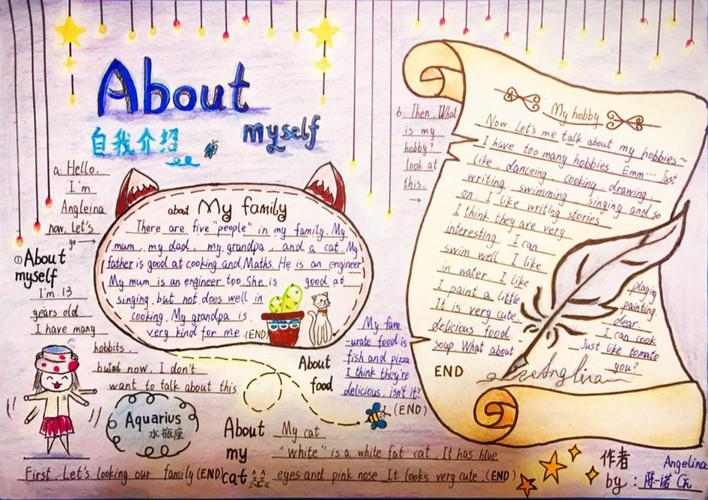 About
自我介绍 myself
a. Hello.
I'm
Angleina
now. Let's
go →
①About
myself
I'm 13
years old
I have many
hobbits.
but now. I don't
want to talk about this
Aquarius
水瓶座
First. Let's looking our family(END)
about My family
There are five "people" in my family. My
mum, my dad, my grandpa, and a cat. My
father is good at cooking and Maths. He is an engineer
My mum is an engineer too. She is good at
singing. but not does well in
cooking. My grandpa is
very kind for me (END)
About
food
My favo
-urate food is
fish and pizza
I think they're
delicious. isn't it?
(END)
About My cat
my "white" is a white fat cat. It has blue
cat eyes and pink nose It looks very cute. (END)
b. Then. What
is my
hobby?
look at
this.
→
My hobby
Now Let's me talk about my hobbies~
I have too many hobbies. Emm... Just
like danceing cooking drawing
writing swimming singing and so
on. I like writing stories
I think they are very
interesting. I can
swim well. I like playing
in water. I like painting
I paint a little clear.
It is very cute. I can cook
delicious food. Just like tomato
soup. What about you?
END
Anglina
作者 Angelina
by: 陈一诺